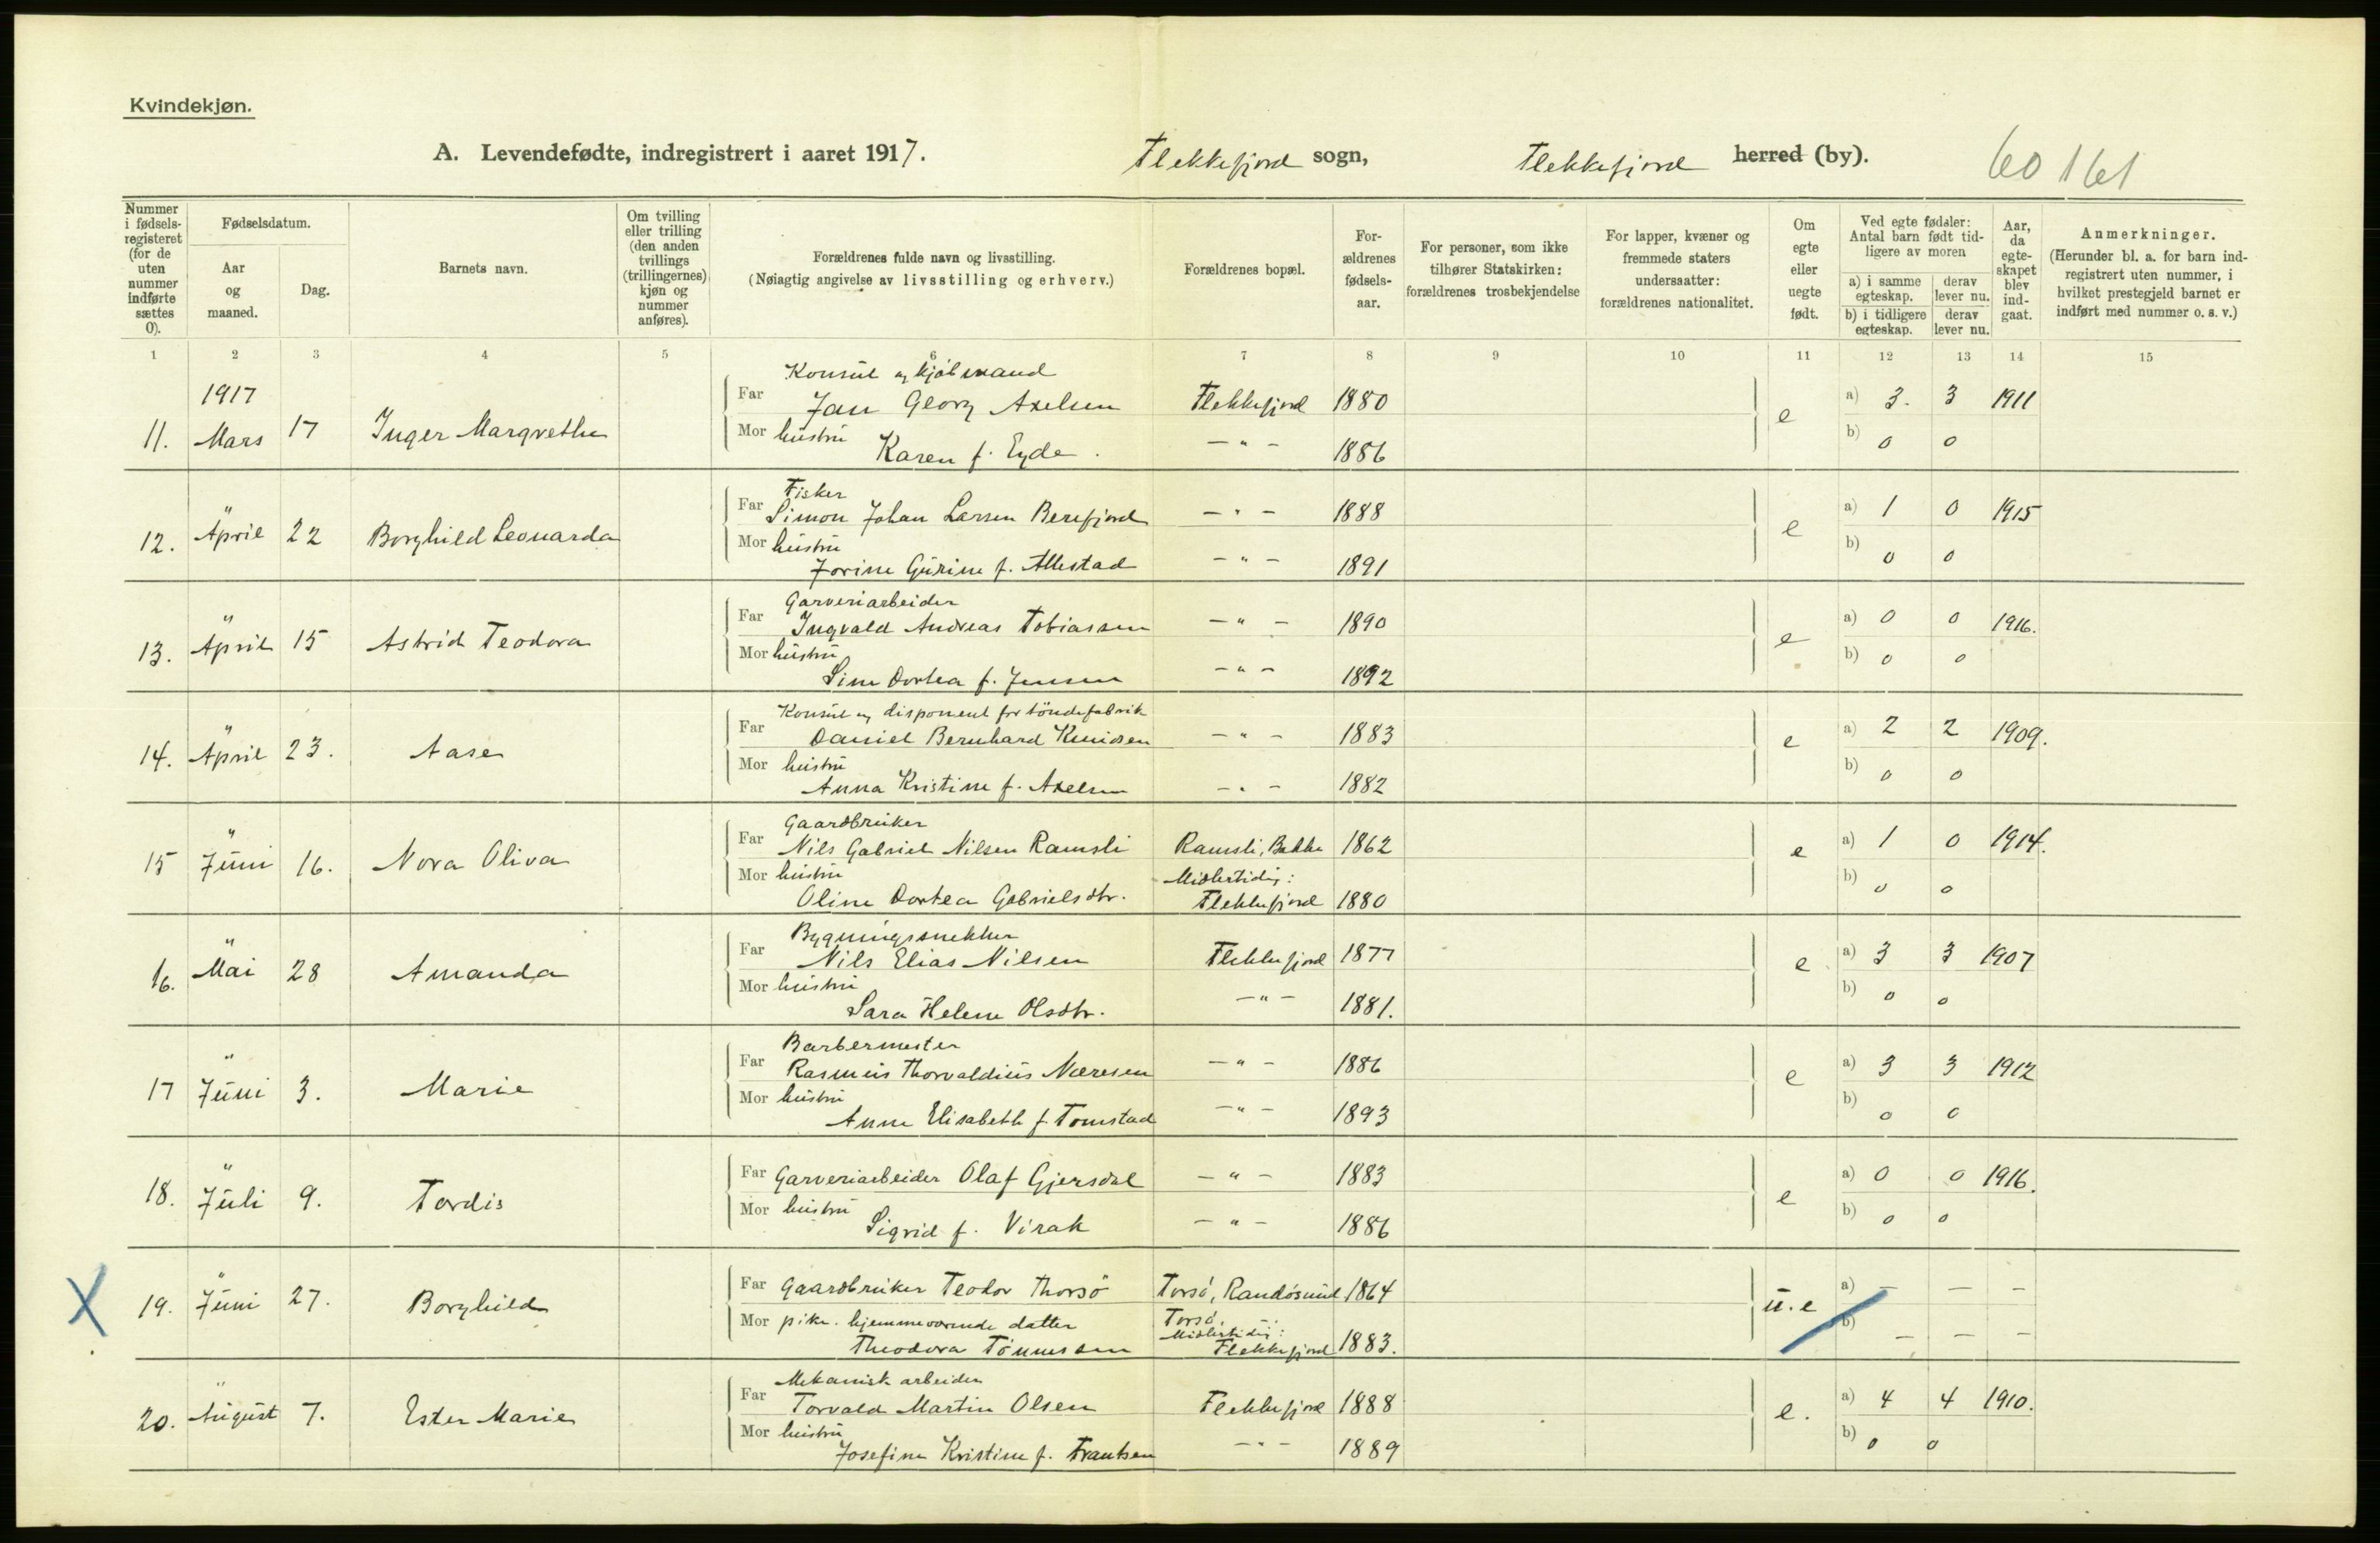 Kvindekjøn.
A. Levendefødte, indregistrert i aaret 1917. Flekkefjord sogn, Flekkefjord herred (by). 60 161
Nummer i fødselsregisteret (for de uten nummer indførte sættes 0).
Fødselsdatum.
Aar og maaned.
Dag.
Barnets navn.
Om tvilling eller trilling (den anden tvillings (trillingernes) kjøn og nummer anføres).
Forældrenes fulde navn og livsstilling.
(Nøiagtig angivelse av livsstilling og erhverv.)
Forældrenes bopæl.
Forældrenes fødselsaar.
For personer, som ikke tilhører Statskirken: forældrenes trosbekjendelse
For lapper, kvæner og fremmede staters undersaatter: forældrenes nationalitet.
Om egte eller uegte født.
Ved egte fødsler: Antal barn født tidligere av moren
a) i samme egteskap. derav lever nu.
b) i tidligere egteskap. derav lever nu.
Aar, da egteskapet blev indgaat.
Anmerkninger.
(Herunder bl. a. for barn indregistrert uten nummer, i hvilket prestegjeld barnet er indført med nummer o. s. v.)
1 2 3 4 5 6 7 8 9 10 11 12 13 14 15
Konsul og kjøbmand
1917 Far Jan Georg Axelsen Flekkefjord 1880 a) 3. 3 1911
11. Mars 17 Inger Margrethe e
Mor hustru Karen f. Eyde. — " — 1886 b) 0 0
Fisker
Far Simon Johan Larsen Berefjord — " — 1888 a) 1 0 1915
12. " April 22 Borghild Leonarda e
Mor hustru Jorine Gurine f. Allestad — " — 1891 b) 0 0
Garveriarbeider
Far Ingvald Andreas Tobiassen — " — 1890 a) 0 0 1916.
13. " April 15 Astrid Teodora e
Mor hustru Sine Dortea f. Jensen — " — 1892 b) 0 0
Konsul og disponent for töndefabrik
Far Daniel Bernhard Knudsen — " — 1883 a) 2 2 1909.
14. " April 23. Aase e
Mor hustru Anna Kristine f. Axelsen — " — 1882 b) 0 0
Gaardbruker
Far Nils Gabriel Nilsen Ramsli Ramsli, Bakke 1862 a) 1 0 1914.
15 " Juni 16. Nora Oliva e
Mor hustru Midlertidig:
Oline Dortea Gabrielsdtr. Flekkefjord 1880 b) 0 0
Bygningssnekker
Far Nils Elias Nilsen Flekkefjord 1877 a) 3 3 1907
16. " Mai 28 Amanda e
Mor hustru Sara Helene Olsdtr. — " — 1881. b) 0 0
Barbermester
Far Rasmus Thorvaldius Næresen — " — 1886 a) 3 3 1912
17 " Juni 3. Marie e
Mor hustru Anne Elisabeth f. Tomstad — " — 1893 b) 0 0
Far Garveriarbeider Olaf Gjersdal — " — 1883 a) 0 0 1916.
18. " Juli 9. Tordis e
Mor hustru Sigrid f. Virak — " — 1886 b) 0 0
Far Gaardbruker Teodor Thorsö Torsö, Randösund 1864 a) — — —
X 19. " Juni 27. Borghild u.e
Mor pike. hjemmeværende datter Torsö.
Midlertidig:
Theodora Tönnessen Flekkefjord 1883. b) — — —
Mekanisk arbeider
Far Torvald Martin Olsen Flekkefjord 1888 a) 4 4 1910.
20. " August 7. Ester Marie e.
Mor hustru Josefine Kristine f. Frantsen — " — 1889 b) 0 0